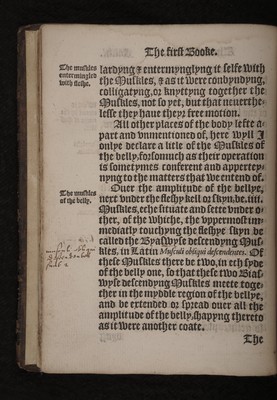 The first Booke.
The muskles
entermingled
with fleshe.
lardyng & entermynglyng it selfe with
the Muskles, & as it were conbyndyng,
colligatyng, or knyttyng together the
Muskles, not so yet, but that neuerthe-
lesse they haue theyr free motion.
All other places of the body lefte a-
part and vnmentioned of, here wyll I
onlye declare a litle of the Muskles of
the bellye, forsomuch as their operation
is sometymes conferent and apperteyt-
nyng to the matters that we entend of.
The muskles
of the belly.
Ouer the amplitude of the bellye,
next vnder the fleshy kell or skyn, be. iiii.
Muskles, eche situate and sette vnder o-
ther, of the whiche, the vppermost im-
mediatly touchyng the fleshye skyn be
called the Byaswyse descendyng Mus-
kles, in Latin Musculi obliqui descendentes. Of
these Muskles there be two, in ech syde
of the belly one, so that these two Bias-
wyse descendyng Muskles meete toge-
ther in the myddle region of the bellye,
and be extended or spread ouer all the
amplitude of the belly, shapyng thereto
as it were another coate.
The